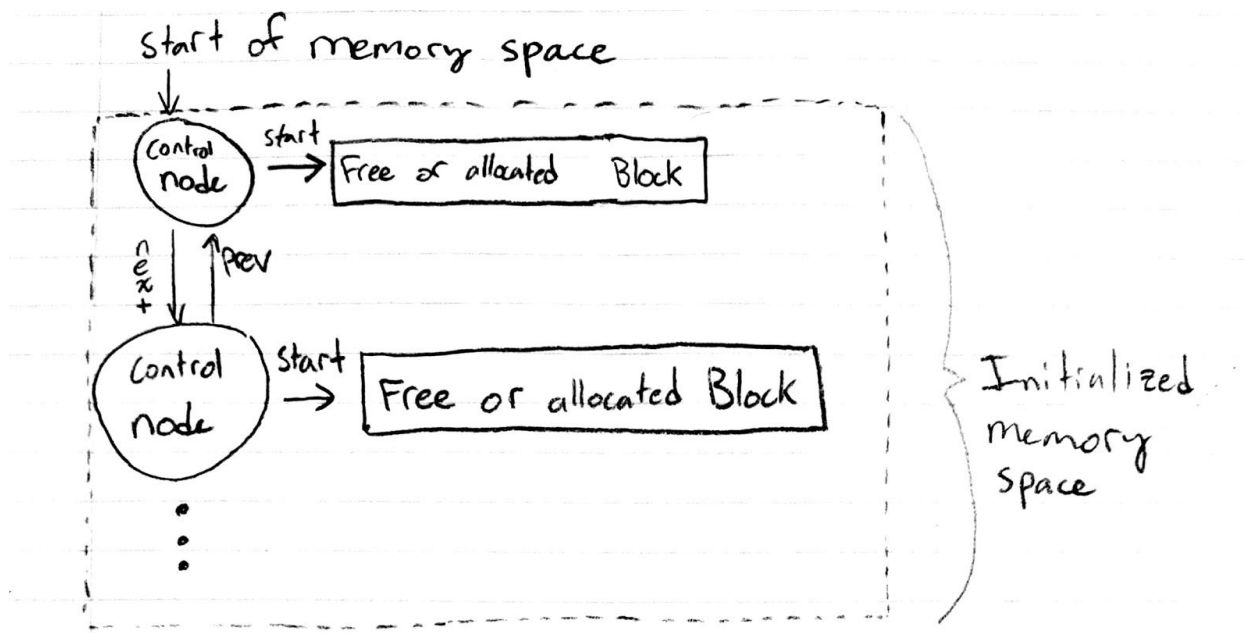 start of memory space
control
node
start
Free or allocated Block
next
prev
control
node
start
Free or allocated Block
Initialized
memory
space